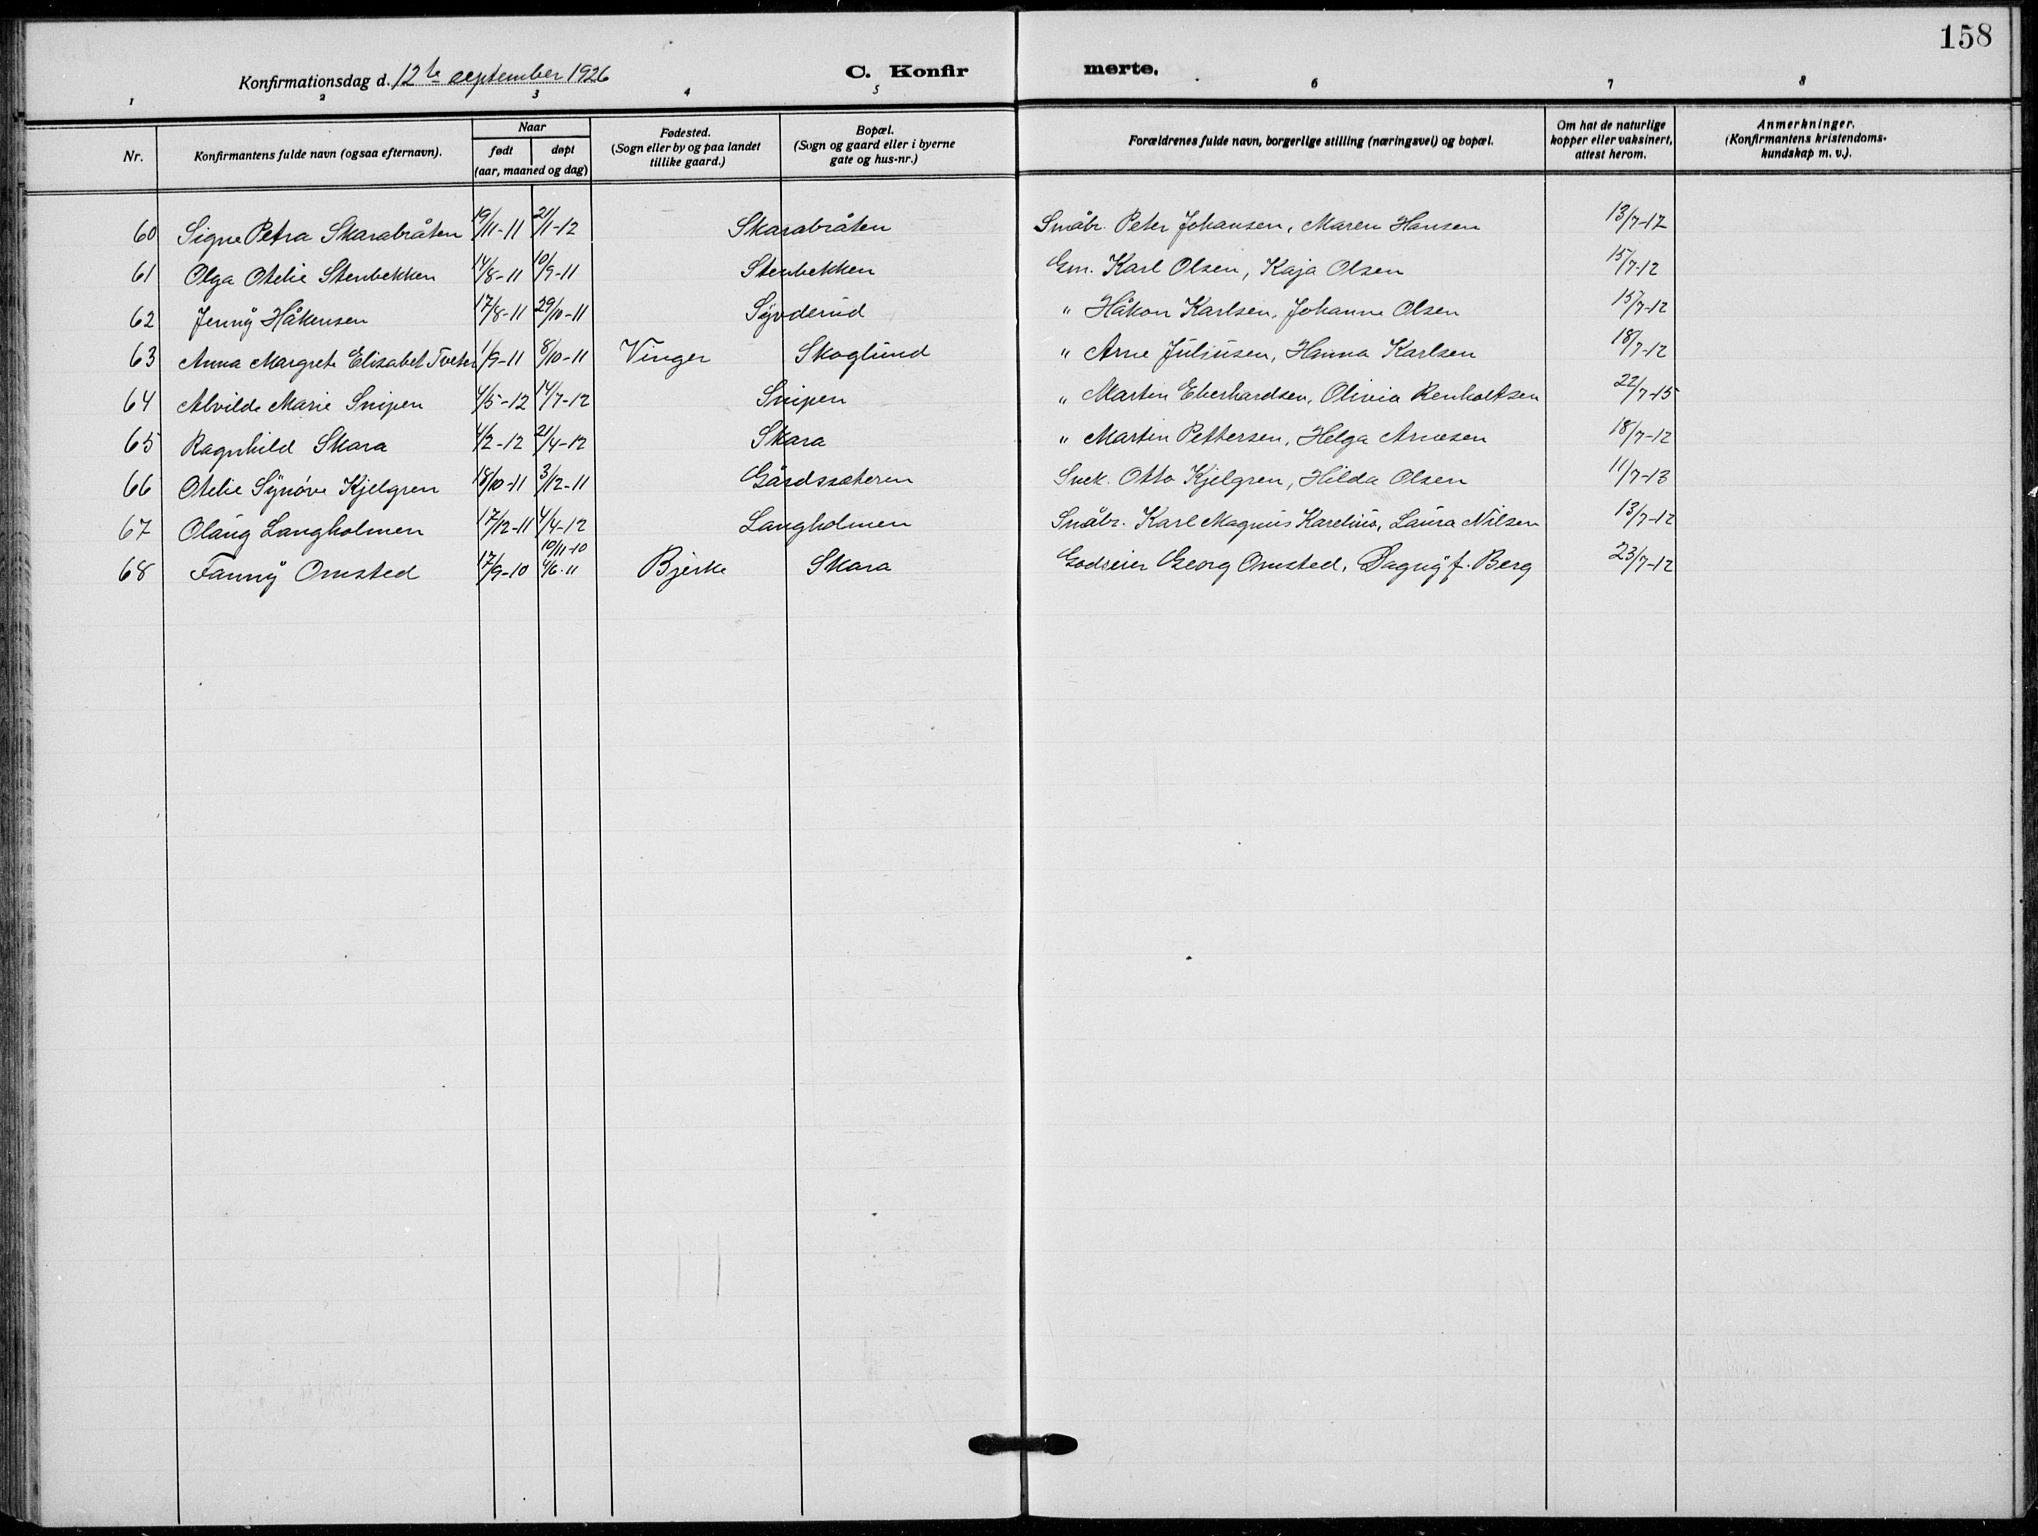 158
Konfirmationsdag d. 12te september 1926 C. Konfirmerte.
1 2 3 4 5 6 7 8
Nr. Konfirmantens fulde navn (ogsaa efternavn). Naar født døpt (aar, maaned og dag) Fødested. (Sogn eller by og paa landet tillike gaard.) Bopæl. (Sogn og gaard eller i byerne gate og hus-nr.) Forældrenes fulde navn, borgerlige stilling (næringsvei) og bopæl. Om hat de naturlige kopper eller vaksinert, attest herom. Anmerkninger. (Konfirmantens kristendoms-kundskap m. v.).
60 Signe Petra Skarabråten 19/11-11 21/1-12 Skarabråten Småbr. Peter Johansen, Maren Hansen 13/7-12
61 Olga Otelie Stenbekken 14/8-11 10/9-11 Stenbekken Gm. Karl Olsen, Kaja Olsen 15/7-12
62 Jenny Håkensen 17/8-11 29/10-11 Synderud " Håkon Karlsen, Johanne Olsen 15/7-12
63 Anna Margrete Elisabet Tveter 1/9-11 8/10-11 Vinger Skoglund " Arne Juliusen, Hanna Karlsen 18/7-12
64 Alvilde Marie Snipen 4/5-12 14/7-12 Snipen " Martin Eberhardsen, Olivia Renholtsen 22/7-15
65 Ragnhild Skara 4/2-12 21/4-12 Skara " Martin Pettersen, Helga Arnesen 18/7-12
66 Otelie Synøve Kjelgren 18/10-11 3/12-11 Gårdssæteren Snek. Otto Kjelgren, Hilda Olsen 11/7-13
67 Olaug Langholmen 17/12-11 4/4-12 Langholmen Småbr. Karl Magnus Karelius, Laura Nilsen 13/7-12
68 Fanny Omsted 17/9-10 10/11-10 4/6-11 Bjerke Skara Godseier Georg Omsted, Dagny f. Berg 23/7-12